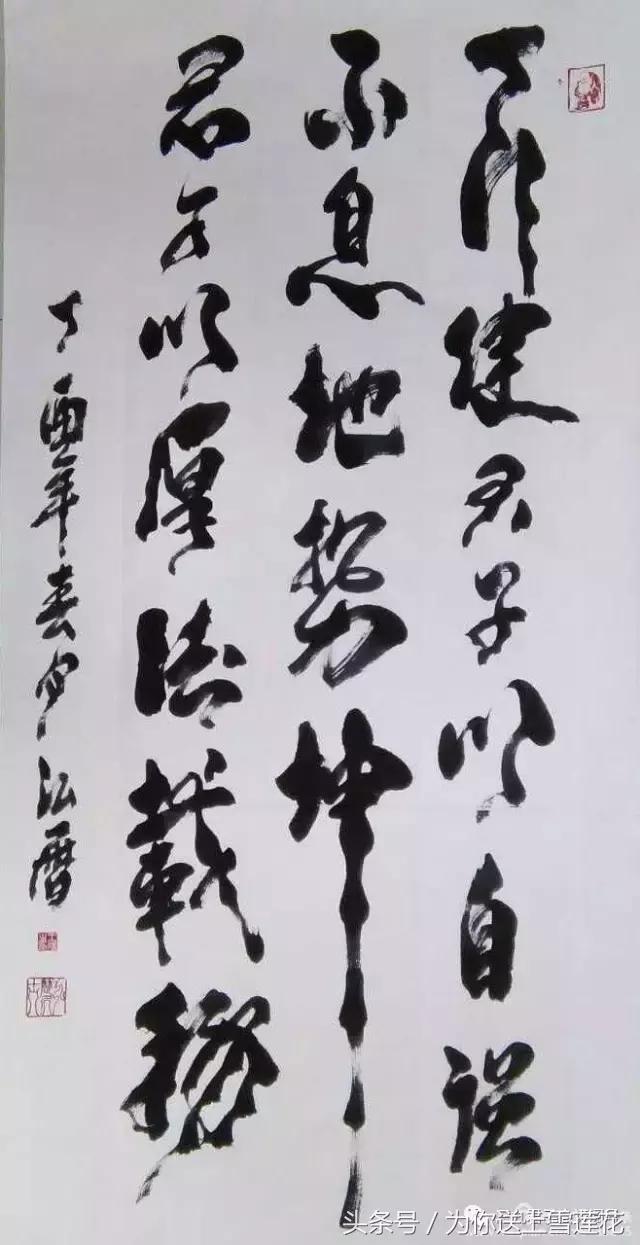 天行健君子以自强
不息地勢坤
君子以厚德載物
丁酉年春
头条号 / 为你送上雪莲花